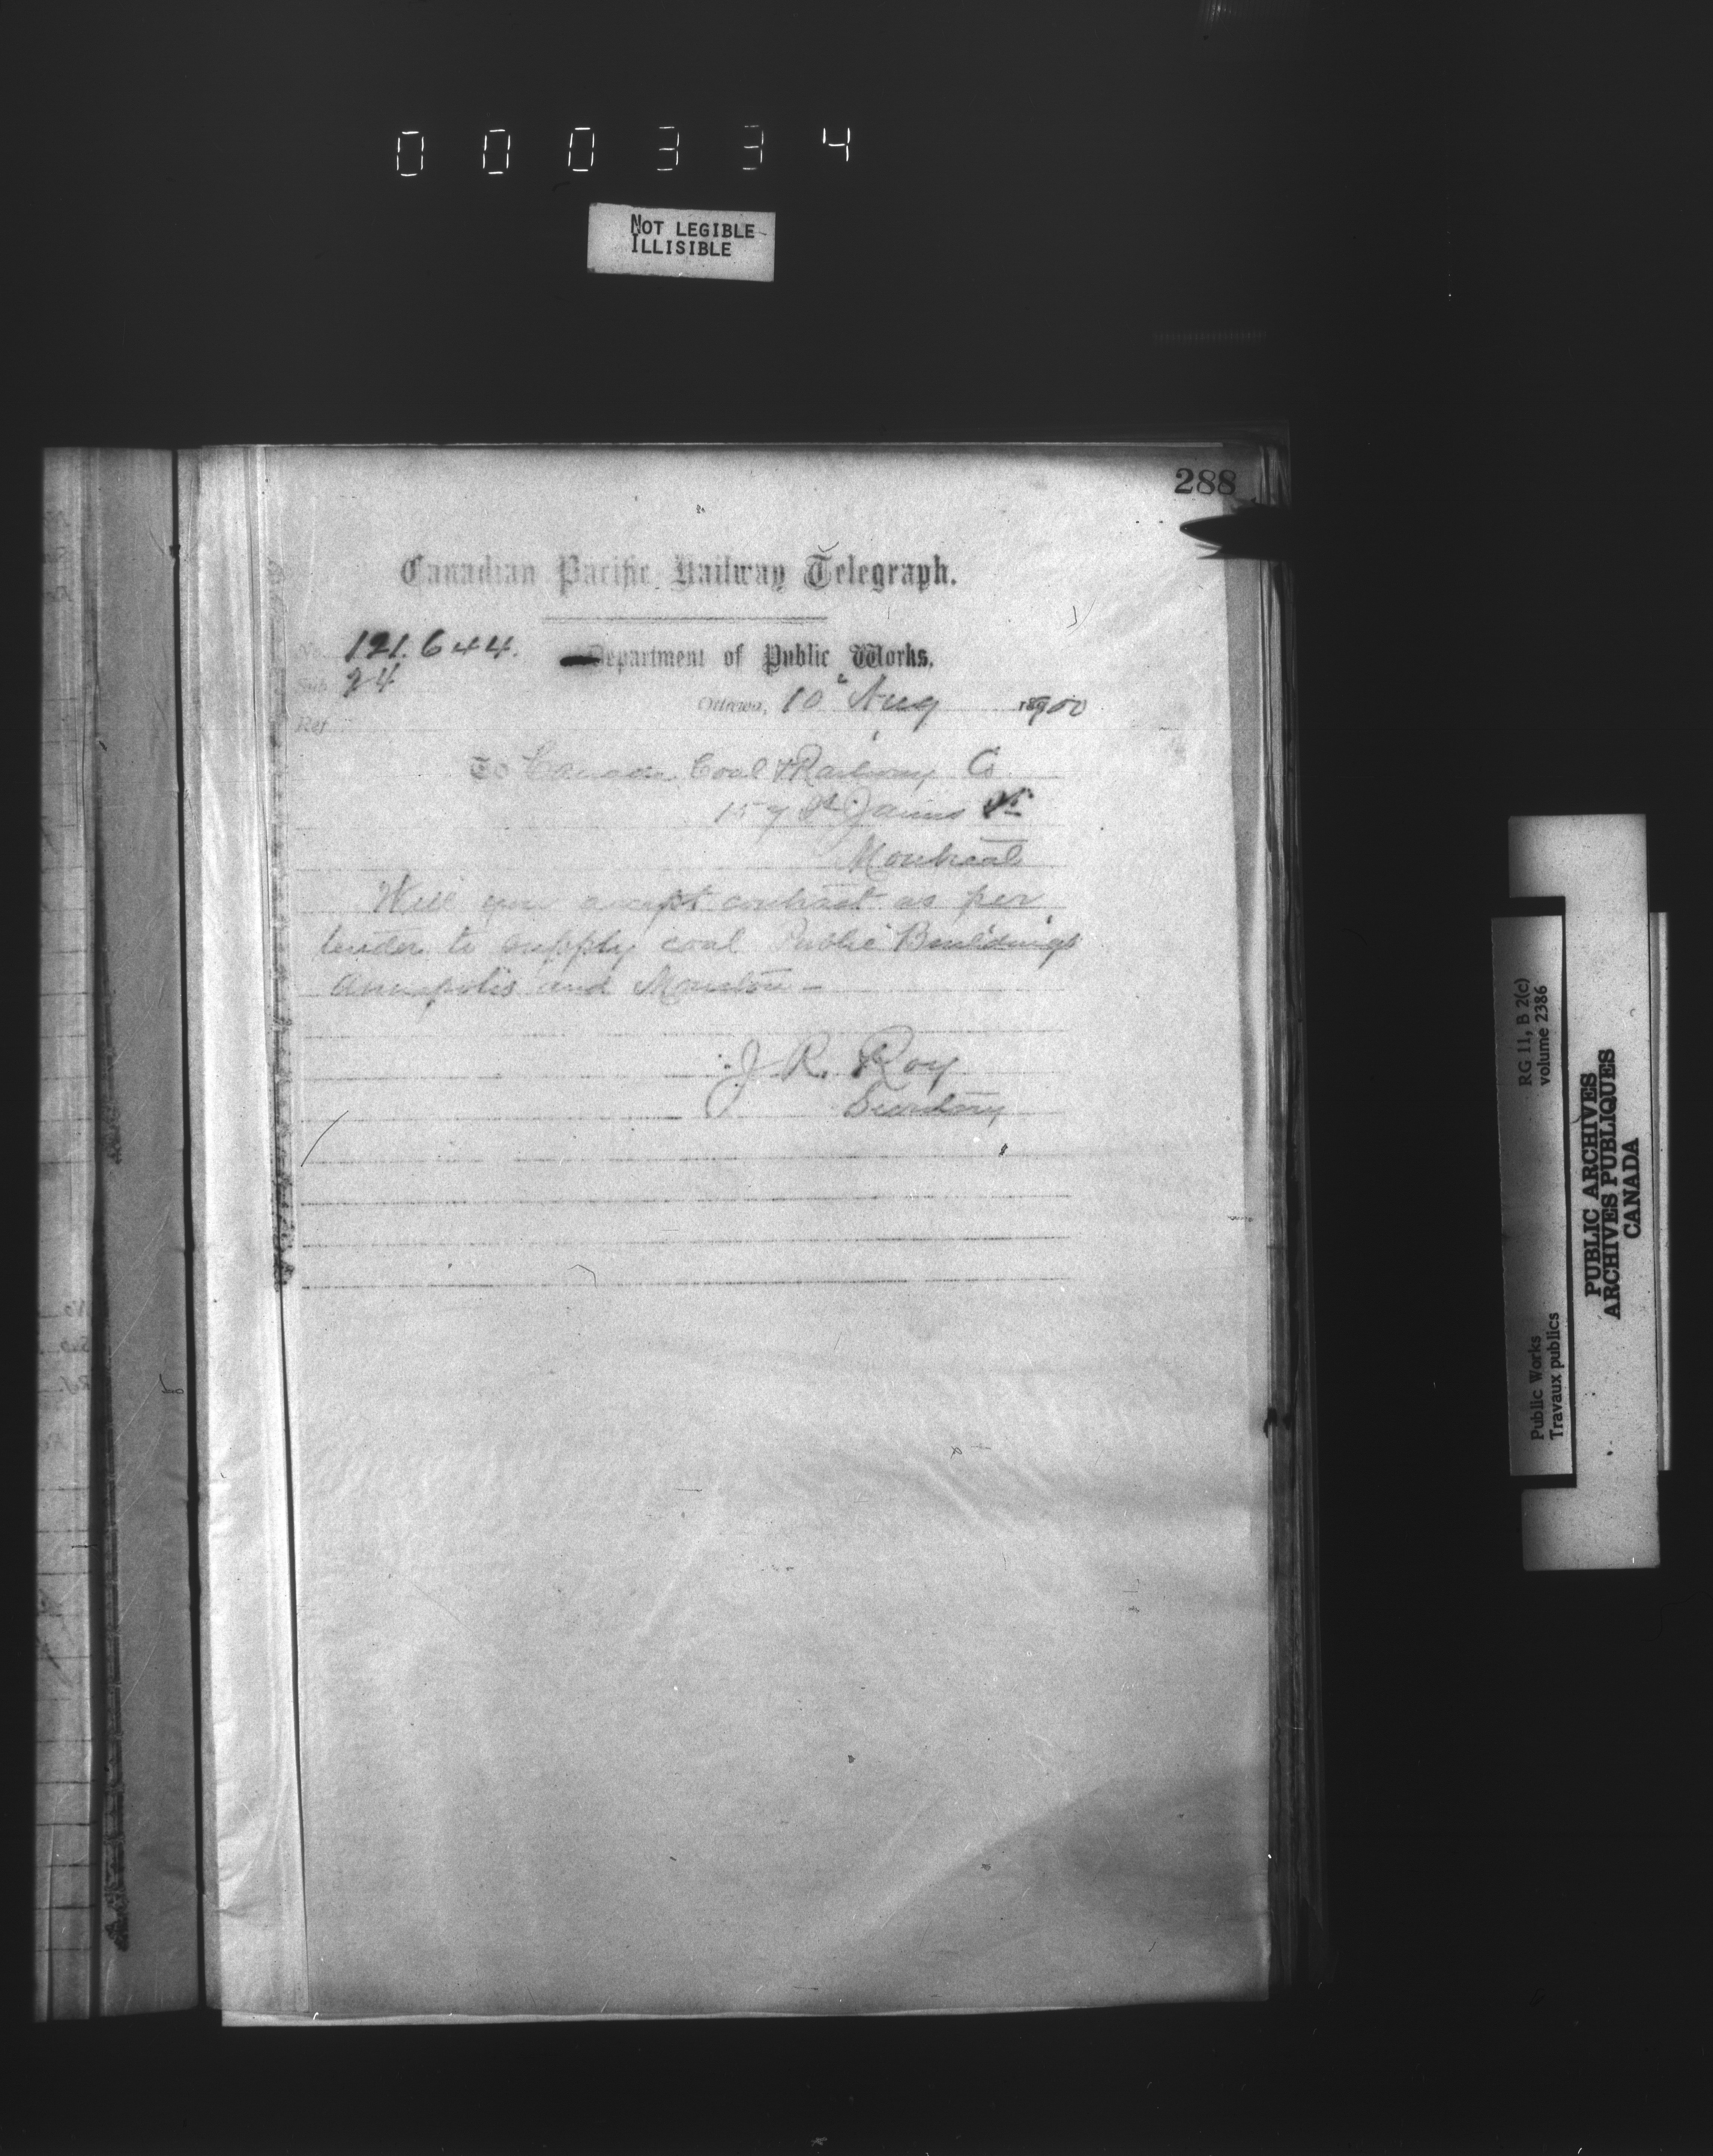 000334
NOT LEGIBLE
ILLISIBLE
288
Canadian Pacific Railway Telegraph.
No. 121.644.
Department of Public Works,
Sub 24
Ottawa, 10" Aug 1900
Ref
To Canada Coal & Railway Co
157 St James St
Montreal
Will you accept contract as per
tender to supply coal Public Buildings
Annapolis and Moncton -
J R. Roy
Secretary
RG 11, B 2(c)
volume 2386
Public Works
Travaux publics
PUBLIC ARCHIVES
ARCHIVES PUBLIQUES
CANADA